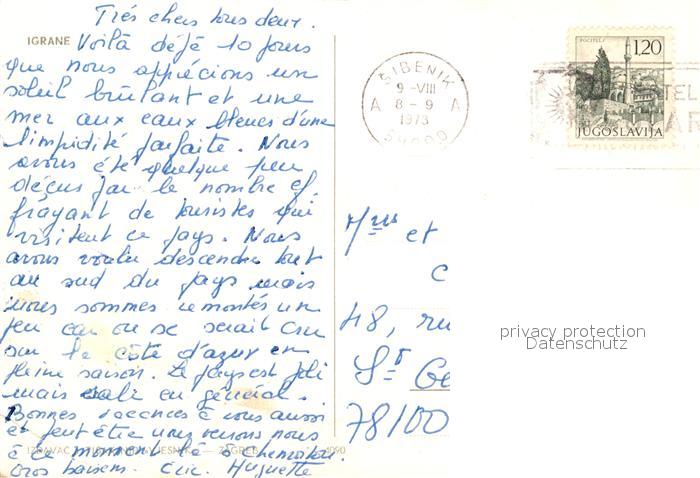 Très chers tous deux.
IGRANE Voilà déjà 10 jours
que nous apprécions un
soleil brûlant et une
mer aux eaux bleues d'une
limpidité parfaite. Nous
avons été quelque peu
déçus par le nombre ef-
frayant de touristes qui
visitent ce pays. Nous
avons voulu descendre tout
au sud du pays mais
nous sommes remontés un
peu car on se serait cru
sur la côte d'azur en
pleine saison. Le pays est joli
mais sale en général.
Bonnes vacances à vous aussi
et peut être nous verrons nous
à ce moment là à
Gros baisers. Huguette
IZDAVAČ ZAGREB
ŠIBENIK
9-VIII
A 8-9 A
1973
POČITELJ
1,20
JUGOSLAVIJA
et
48, ru
St Ge
78100
privacy protection
Datenschutz